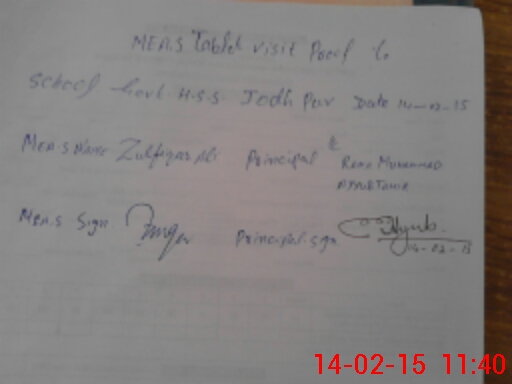 MEA.S Tablet visit Proof
School Govt H.S.S. Jodh Pur Date 14-02-15
MEA.S Name Zulfiqar Ali Principal Rana Muhammad
MEA.S Sign Principal.Sgn
14-02-15
14-02-15 11:40